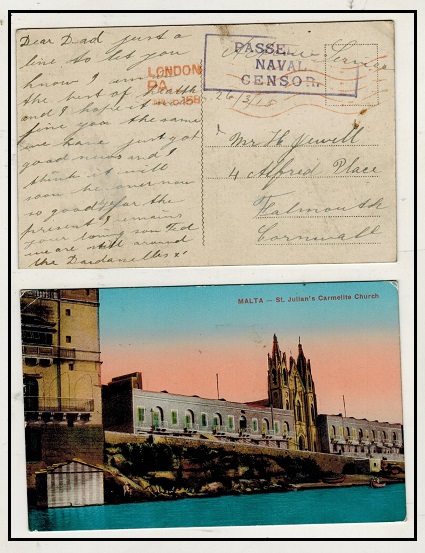 Dear Dad just a
line to let you
know I am in
the best of health
and I hope it will
fine you the same
we have just got
good news and I
think it will
soon be over now
so good bye for the
present I remains
your loving son Ted
we are still around
the Dardanelles x
LONDON
PASSED
NAVAL
CENSOR.
Active Service
26/3/15
Mr H Jewell
4 Alfred Place
Falmouth
Cornwall
MALTA — St. Julian's Carmelite Church